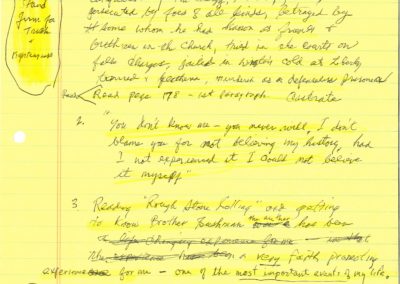 Stand
Firm for
Truth
&
persecuted by foes of all kinds, betrayed by
some whom he had chosen as friends &
brethren in the Church, tried in the courts on
false charges, jailed in winter's cold at Liberty
& feathered, murdered as a defenseless prisoner
Read page 178 - 1st paragraph
2. "You don't know me - you never will, I don't
blame you for not believing my history, had
I not experienced it I could not believe
it myself"
3. Reading "Rough Stone Rolling" and getting
to know Brother Bushman the author has been
a life changing experience for me -
The experience has been a very faith promoting
experience for me - one of the most important events of my life.